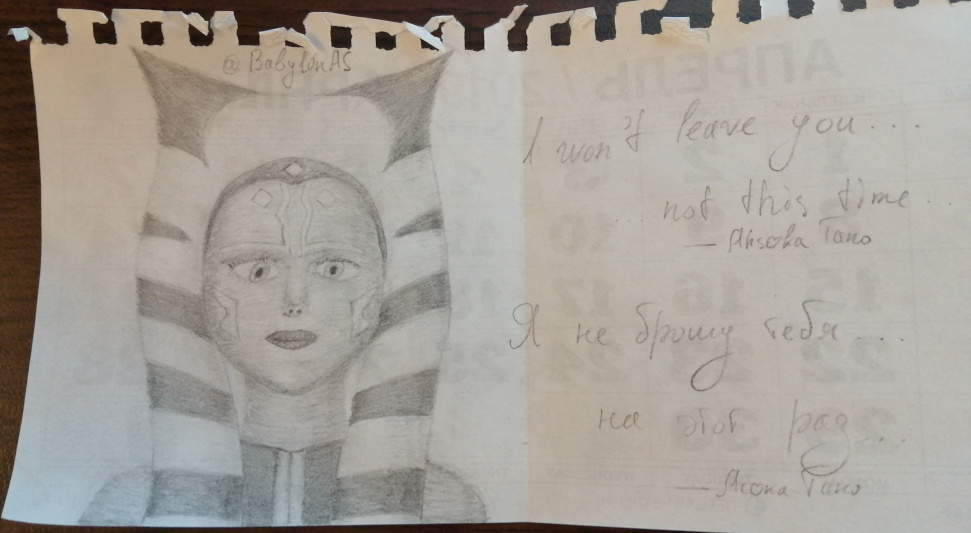 @BabylonAS
I won't leave you...
...not this time...
— Ahsoka Tano
Я не брошу тебя...
на этот раз...
— Асока Тано